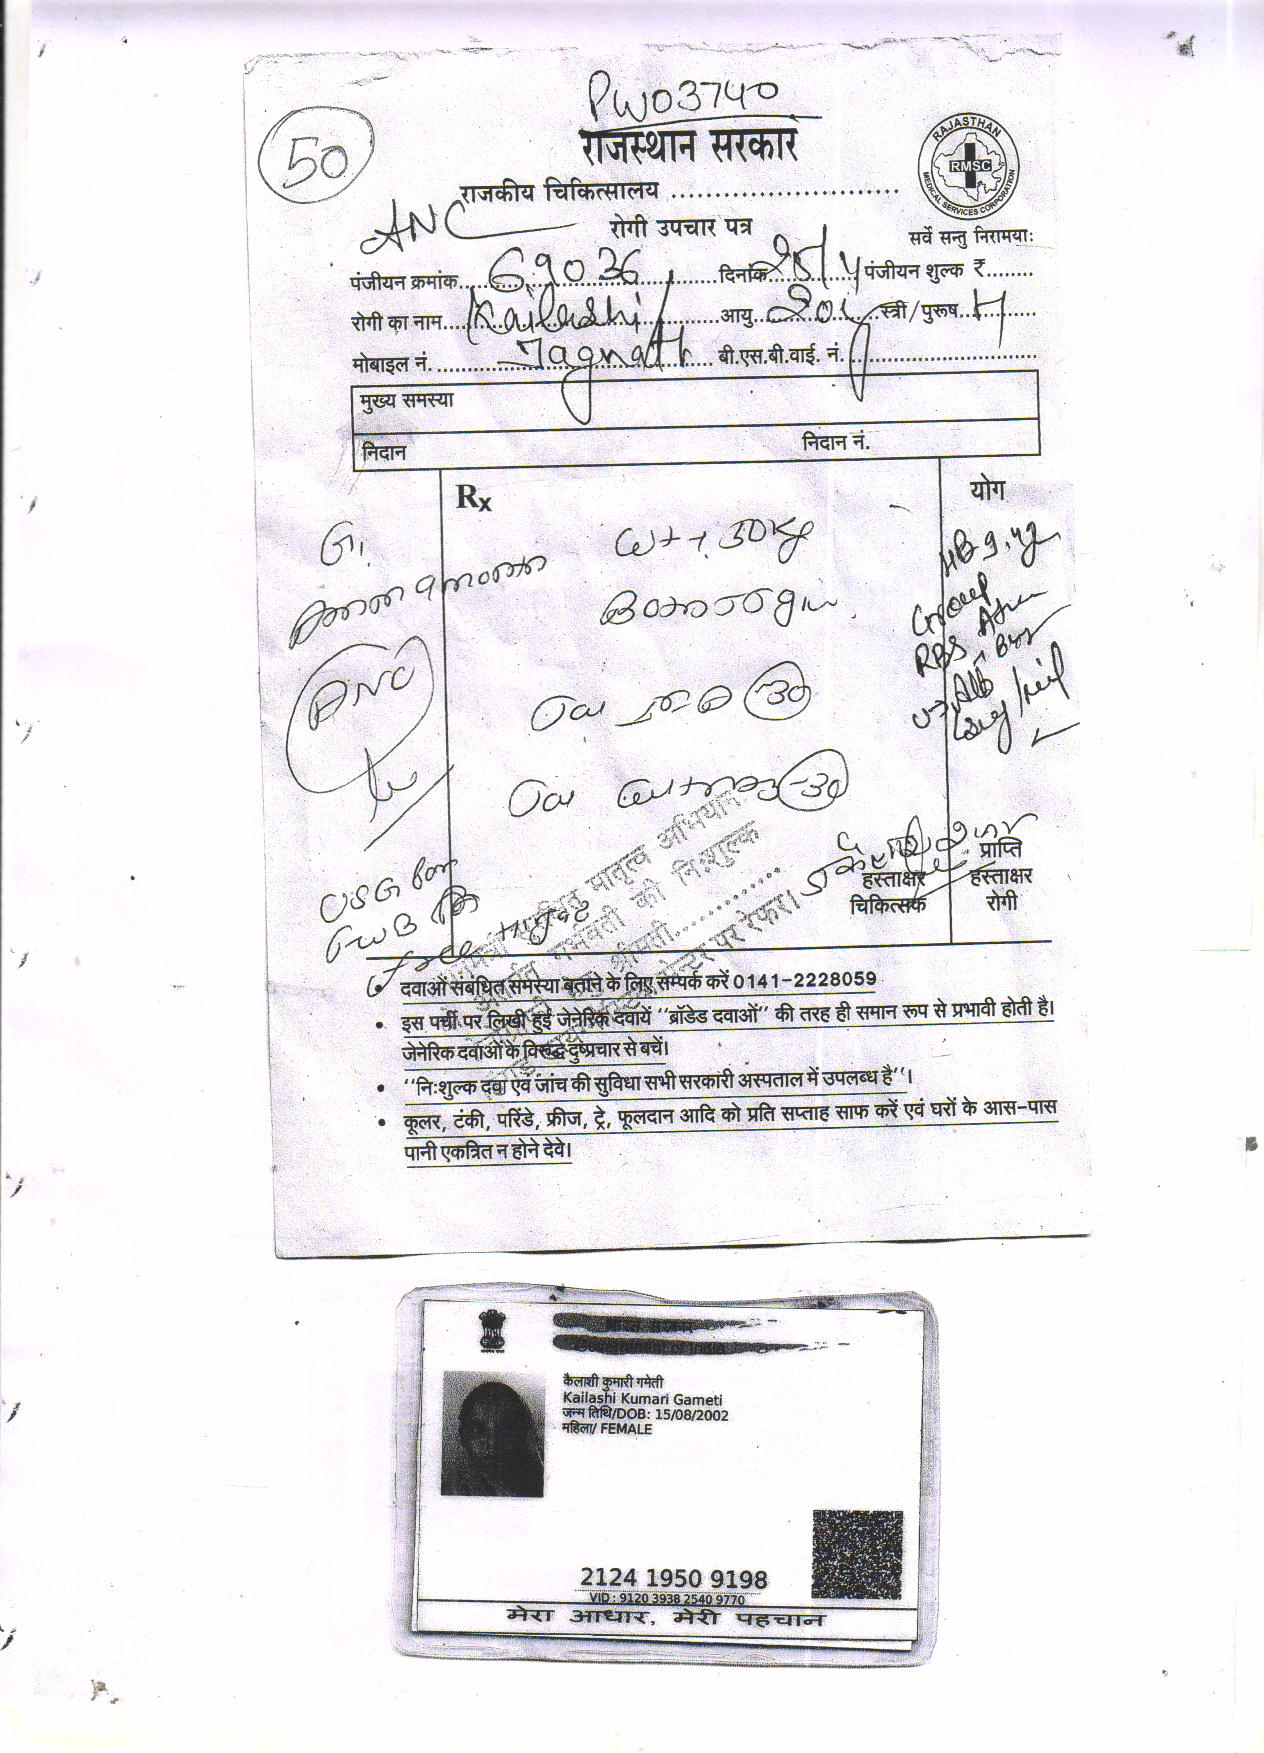 PW03740
50
राजस्थान सरकार
RAJASTHAN
RMSC
MEDICAL SERVICES CORPORATION
राजकीय चिकित्सालय ..........................
ANC
रोगी उपचार पत्र
सर्वे सन्तु निरामयाः
पंजीयन क्रमांक... 69036 ...दिनांक 25/4 पंजीयन शुल्क ₹........
रोगी का नाम.... Kailashi/ ...आयु... 20y ...स्त्री/पुरूष...
मोबाइल नं. ... Jagnath ... बी.एस.बी.वाई. नं. ..............................
मुख्य समस्या
निदान निदान नं.
Rx
योग
G1
wt 50kg
HB 9.4g
Group
RBS
Alb
Sug/nil
ANC
-30
-30
USG for
FWB
हस्ताक्षर
चिकित्सक
प्राप्ति
हस्ताक्षर
रोगी
मातृत्व अभियान
गर्भवती की निःशुल्क
श्रीमती..............
सेन्टर पर रेफर।
• दवाओं संबंधित समस्या बताने के लिए सम्पर्क करें 0141-2228059
• इस पर्ची पर लिखी हुई जेनेरिक दवायें "ब्रॉडेड दवाओं" की तरह ही समान रूप से प्रभावी होती है।
जेनेरिक दवाओं के विरूद्ध दुष्प्रचार से बचें।
• "निःशुल्क दवा एवं जांच की सुविधा सभी सरकारी अस्पताल में उपलब्ध है"।
• कूलर, टंकी, परिंडे, फ्रीज, ट्रे, फूलदान आदि को प्रति सप्ताह साफ करें एवं घरों के आस-पास
पानी एकत्रित न होने देवे।
भारत सरकार
Government of India
कैलाशी कुमारी गमेती
Kailashi Kumari Gameti
जन्म तिथि/DOB: 15/08/2002
महिला/ FEMALE
2124 1950 9198
VID : 9120 3938 2540 9770
मेरा आधार, मेरी पहचान